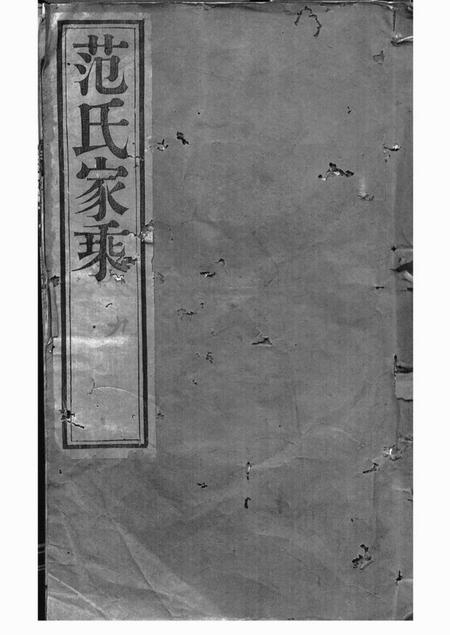 范氏家乘